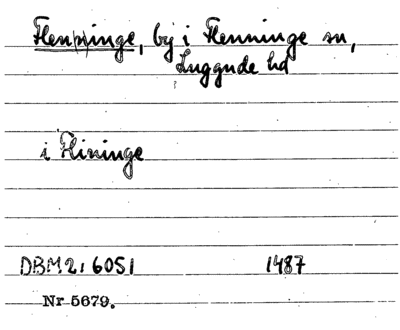 Flenninge, by i Flenninge sn,
Luggude hd
i Flininge
DBM 2: 6051 1487
Nr 5679.